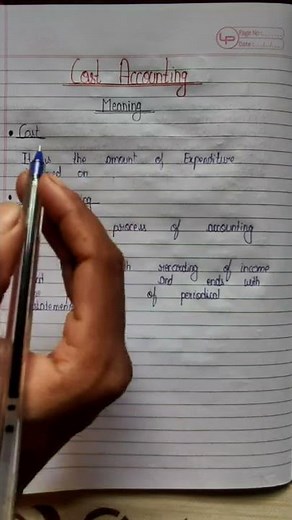 Page No:
Date:
Cost Accounting
Meaning
• Cost
It is the amount of Expenditure
on
process of accounting
recording of income
and ends with
of periodical